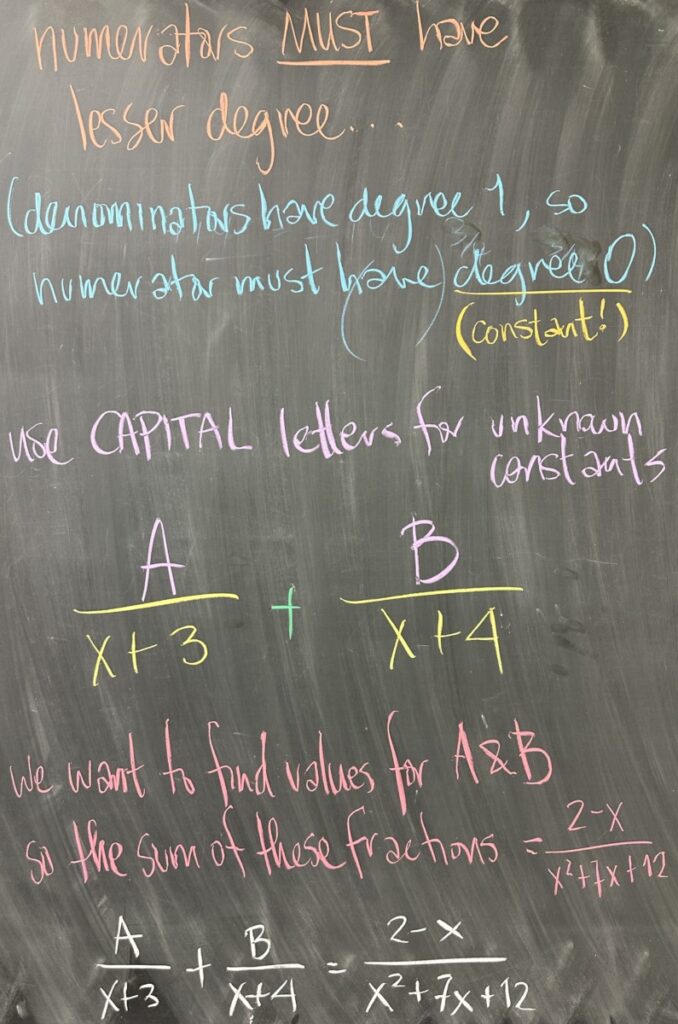 numerators MUST have
lesser degree...
(denominators have degree 1, so
numerator must have) degree 0)
(constant!)
use CAPITAL letters for unknown
constants
A/(x+3) + B/(x+4)
we want to find values for A&B
so the sum of these fractions = (2-x)/(x²+7x+12)
A/(x+3) + B/(x+4) = (2-x)/(x²+7x+12)